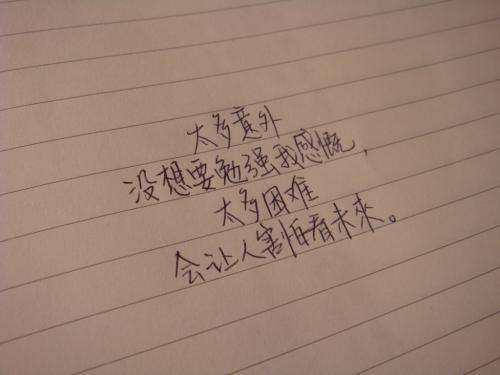 太多意外
没想要勉强我感慨,
太多困难
会让人害怕看未來。